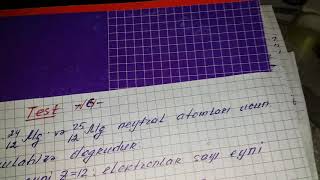 Test -16-
²⁴₁₂Mg və ²⁵₁₂Mg neytral atomları üçün
doğrudur
z=12. elektronlar sayı eyni